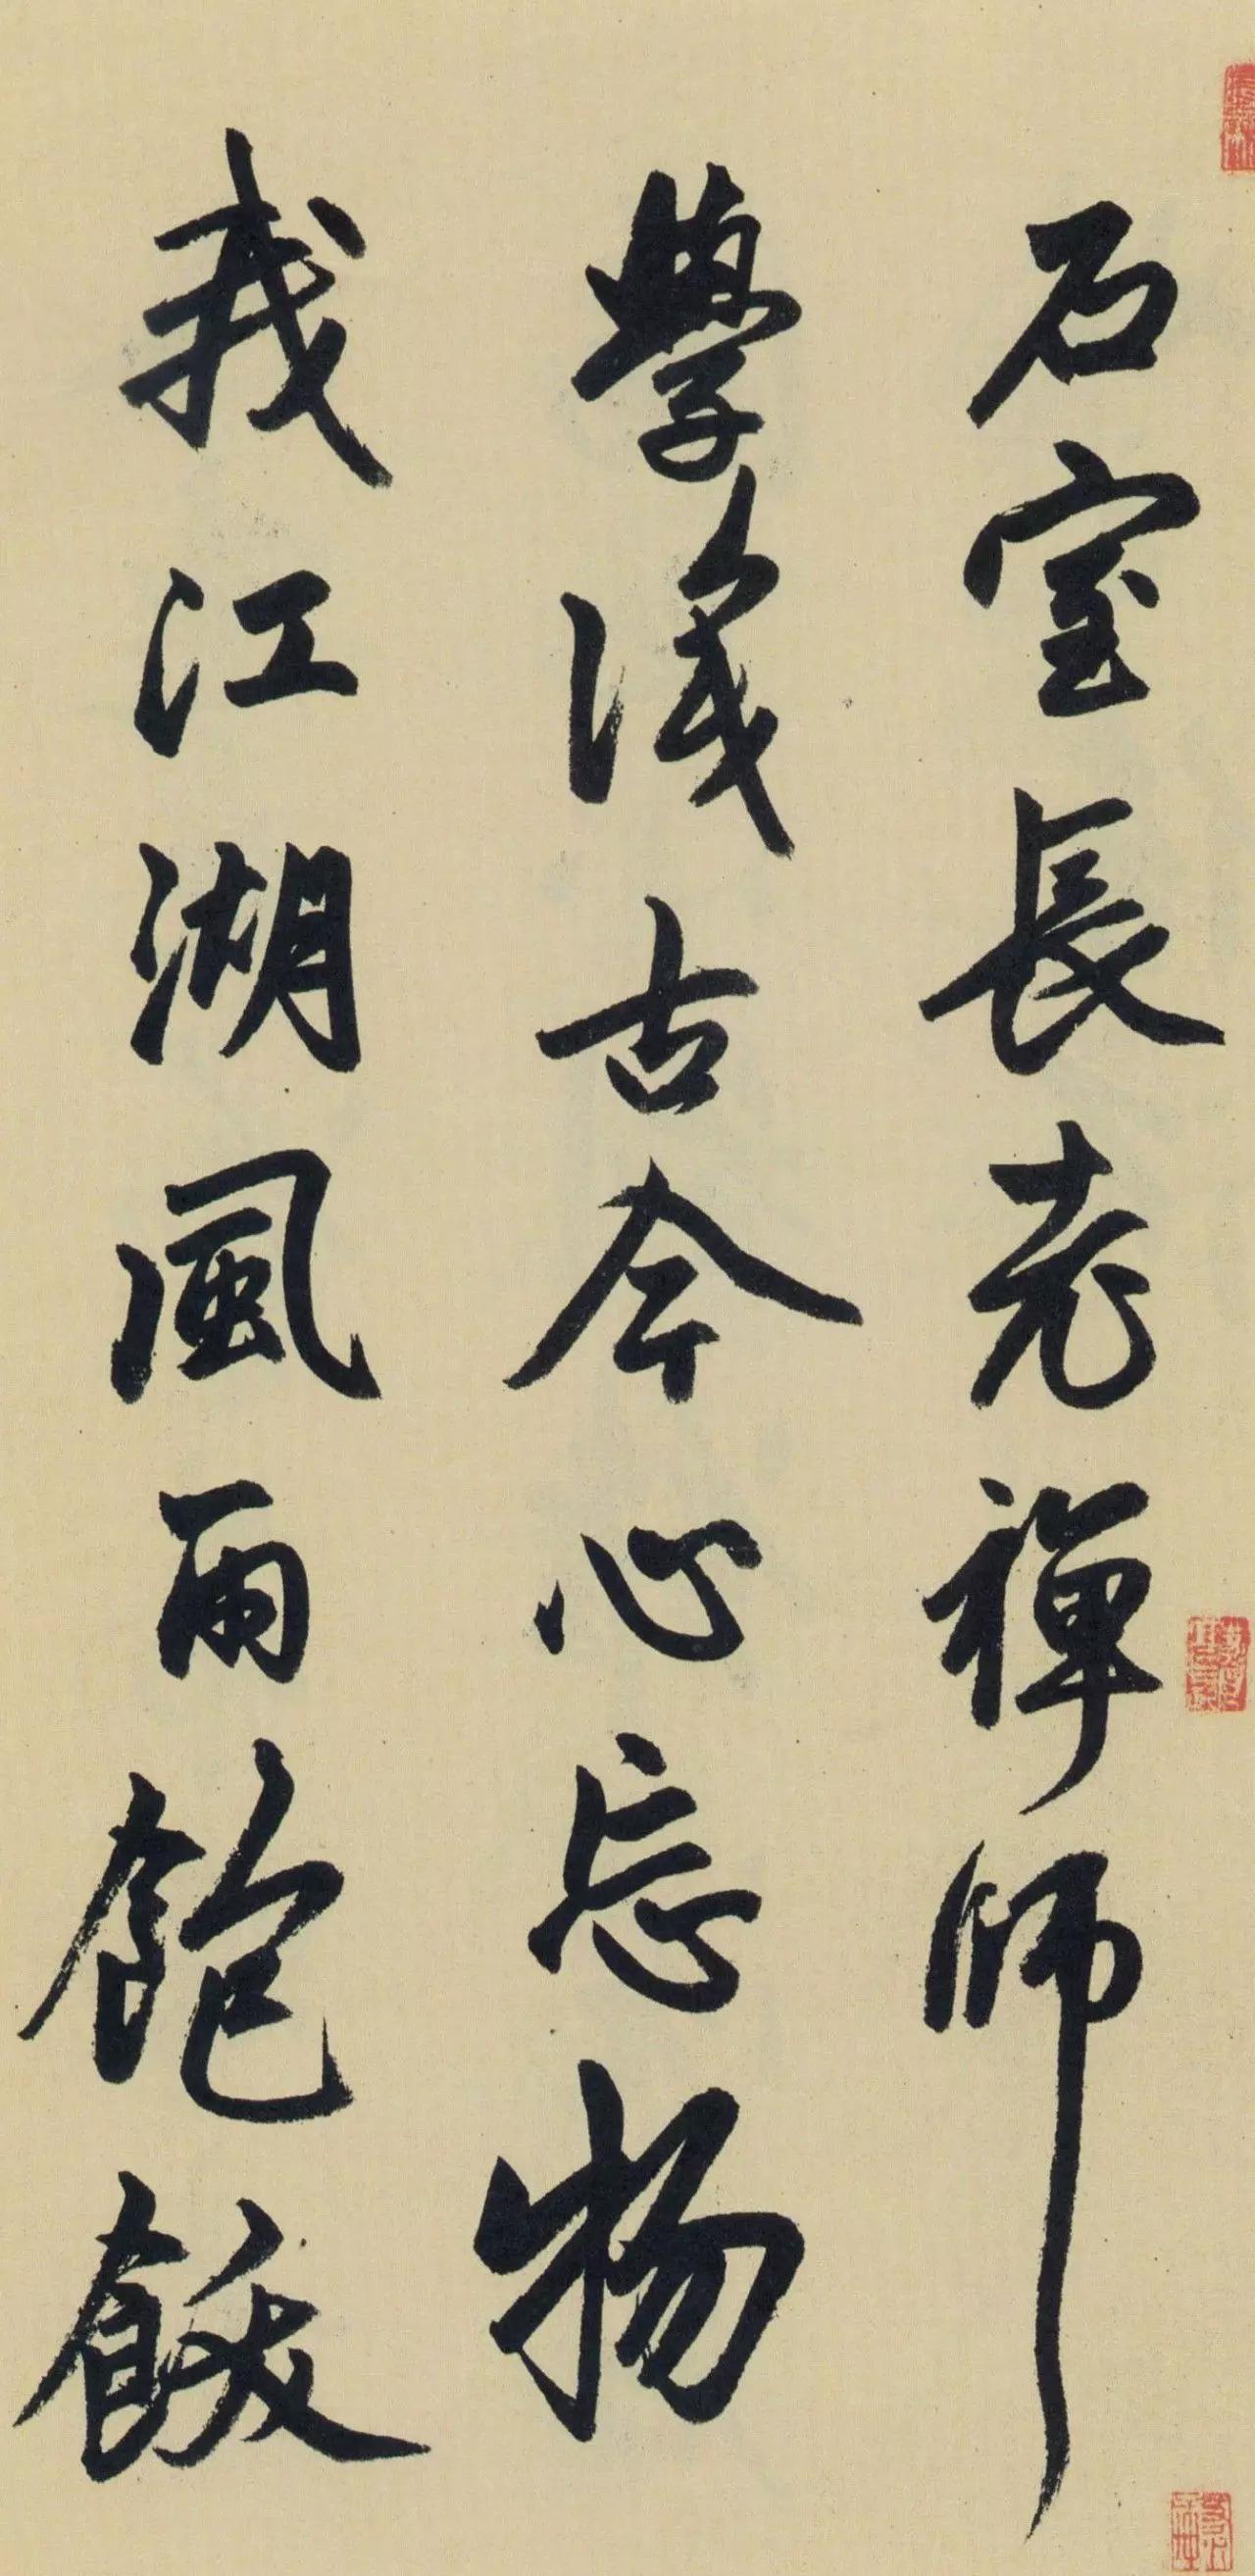 石室長老禪師
學識古今心忘物
我江湖風雨飽